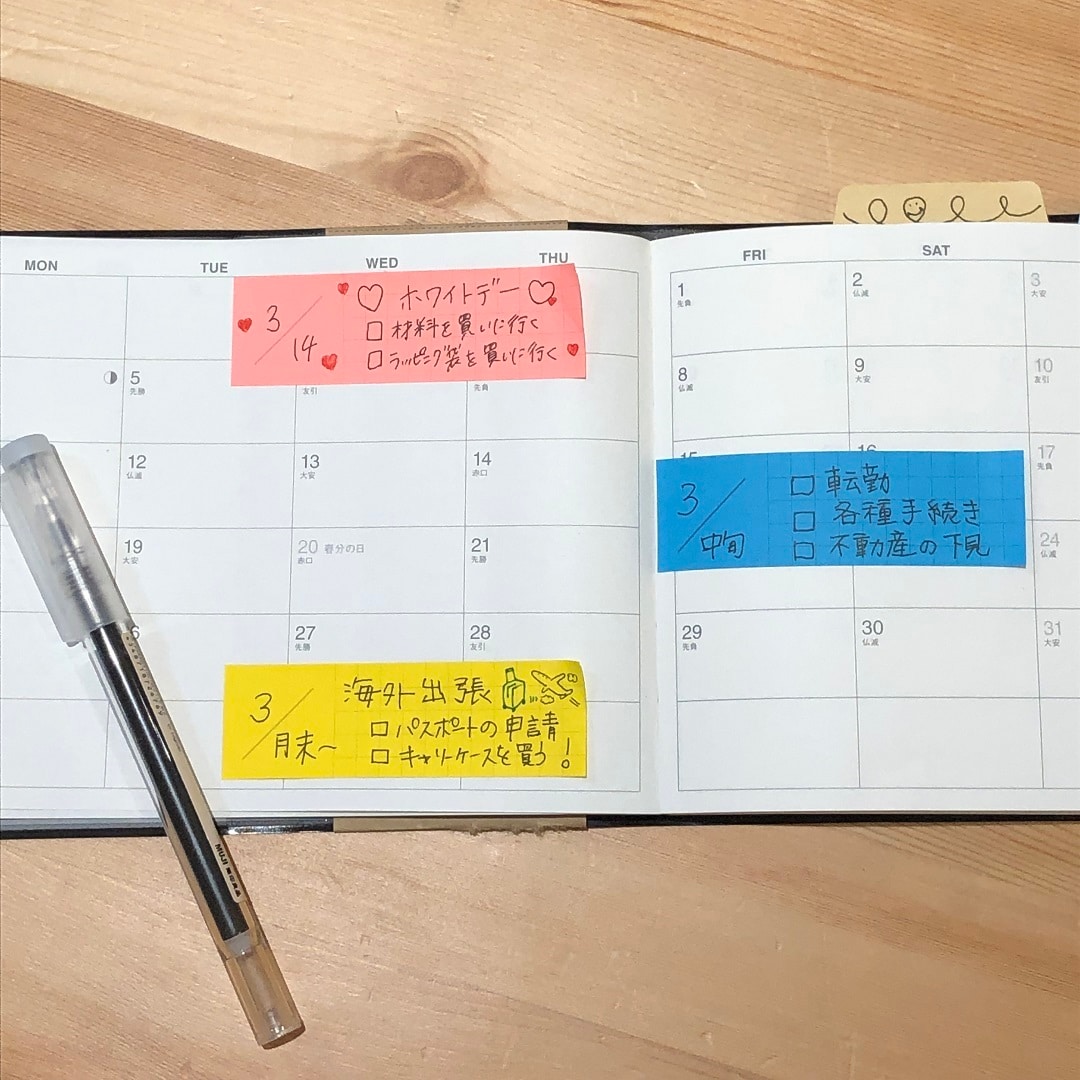 MON TUE WED THU FRI SAT
3/14 ホワイトデー
□ 材料を買いに行く
□ ラッピング袋を買いに行く
1 先負 2 仏滅 3 大安
5 先勝 友引 先負 8 仏滅 9 大安 10 友引
12 仏滅 13 大安 14 赤口 15 16 17 先負
3/中旬
□ 転勤
□ 各種手続き
□ 不動産の下見
19 大安 20 春分の日 赤口 21 先勝 24 仏滅
27 先勝 28 友引 29 先負 30 仏滅 31 大安
3/月末~ 海外出張
□ パスポートの申請
□ キャリーケースを買う!
MUJI 無印良品